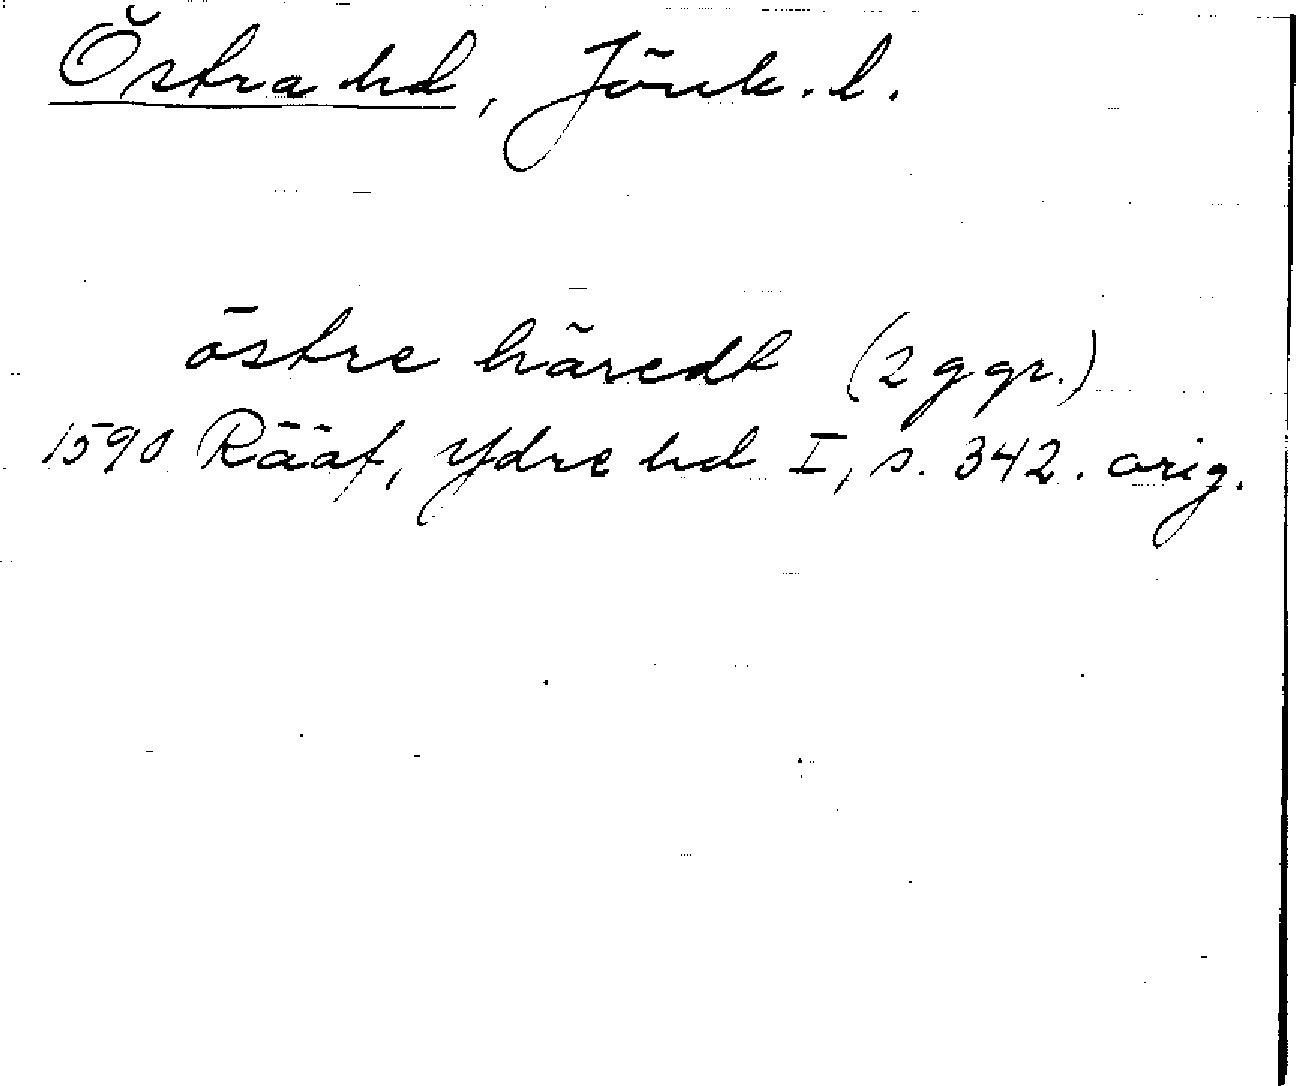 Östra hd, Jönk. l.
östre häredt (2 ggr.)
1590 Rääf, Ydre hd I, s. 342. orig.